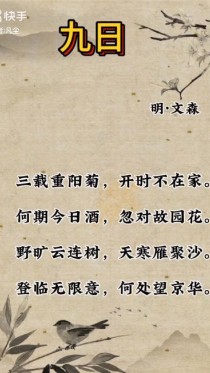 快手
九日
明·文森
三载重阳菊，开时不在家。
何期今日酒，忽对故园花。
野旷云连树，天寒雁聚沙。
登临无限意，何处望京华。